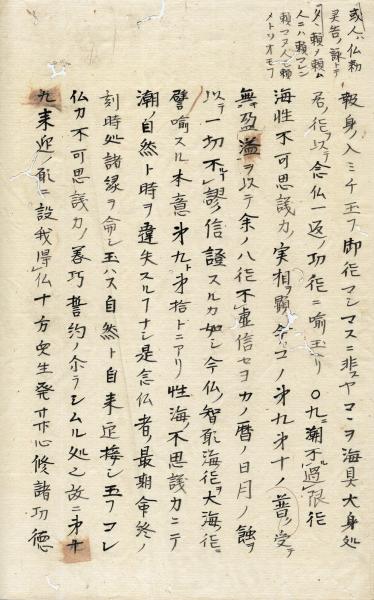 或人ハ仏勅
ノ頼ノ頼ム
人ニハ頼マレン
頼マヌ人ニ頼
メトリオモフ
報身ノ入ミチ玉フ御徳マシマスニ非スヤコヽヲ海具大身処
君ノ徳ヲ以テ念仏一返ノ功徳ニ喩玉リ〇九ニ潮不過限徳
海性不可思議力実相ヲ顕今コノ第九第十ノ普ク受テ
無盈溢ヲ以テ余ノ八徳不虚信セヨカノ暦ノ日月ノ蝕ヲ
以テ一切不謬信證スルカ如シ今仏ノ智願海徳ヲ大海ノ徳ニ
譬喩スル本意第九ト第拾トニアリ性海ノ不思議力ニテ
潮ノ自然ト時ヲ違失スルフナシ是念仏者ノ最期命終ノ
刻時処諸縁ヲ論シ玉ハス自然ト自来迎接シ玉フコレ
仏力不可思議力ノ善巧誓約ノ尓ラシムル処也故ニ第廾
九来迎ノ願ニ設我得仏十方衆生発𦬇心修諸功徳